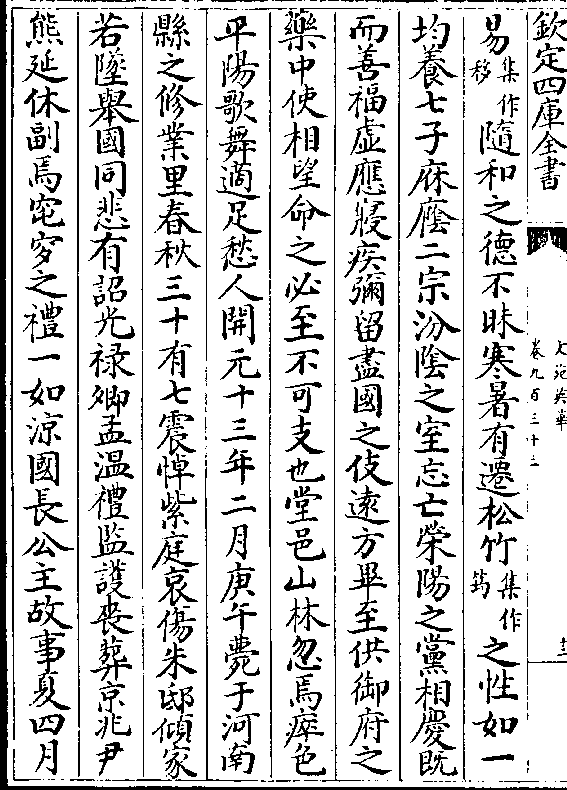 欽定四庫全書
文苑英華
卷九百三十三
易集作移隨和之德不昧寒暑有遷松竹集作筠之性如一
均養七子庥廕二宗汾陰之室忘亡榮陽之黨相慶既
而善福虚應寢疾彌留盡國之伎遠方畢至供御府之
藥中使相望命之必至不可支也堂邑山林忽焉瘁色
平陽歌舞適足愁人開元十三年二月庚午薨于河南
縣之修業里春秋三十有七震悼紫庭哀傷朱邸傾家
若墜舉國同悲有詔光禄卿孟温禮監護喪葬京兆尹
熊延休副焉窀穸之禮一如涼國長公主故事夏四月